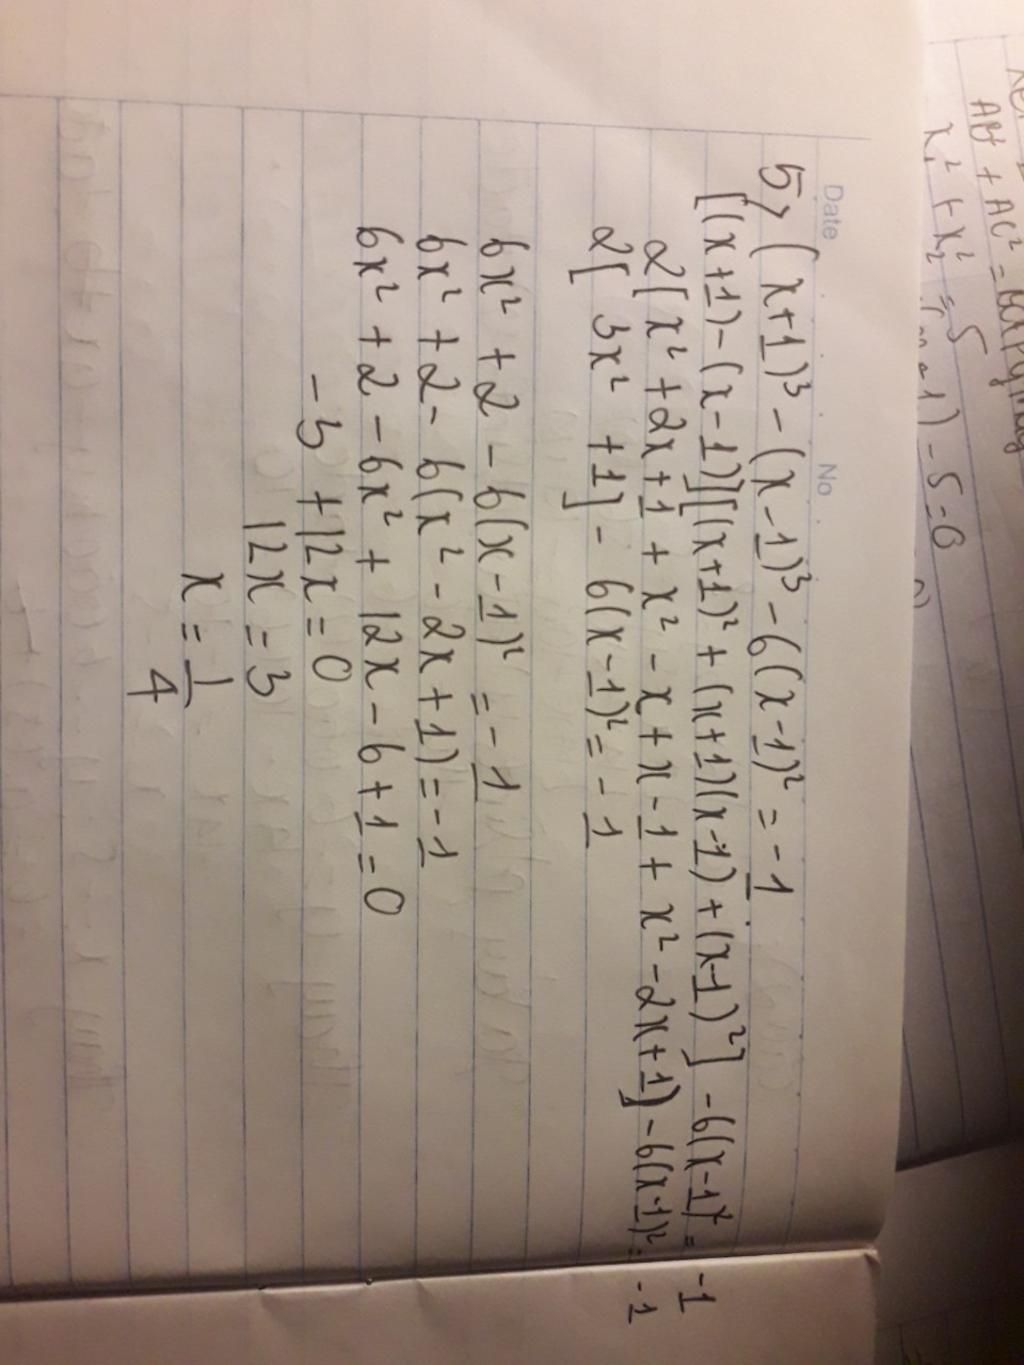 AB² + AC² =
x₁² + x₂² = 5
- 5 = 0
Date No
5) (x+1)³ - (x-1)³ - 6(x-1)² = -1
[(x+1) - (x-1)][(x+1)² + (x+1)(x-1) + (x-1)²] - 6(x-1)² = -1
2[x² + 2x + 1 + x² - x + x - 1 + x² - 2x + 1] - 6(x-1)² = -1
2[3x² + 1] - 6(x-1)² = -1
6x² + 2 - 6(x-1)² = -1
6x² + 2 - 6(x² - 2x + 1) = -1
6x² + 2 - 6x² + 12x - 6 + 1 = 0
-3 + 12x = 0
12x = 3
x = 1/4